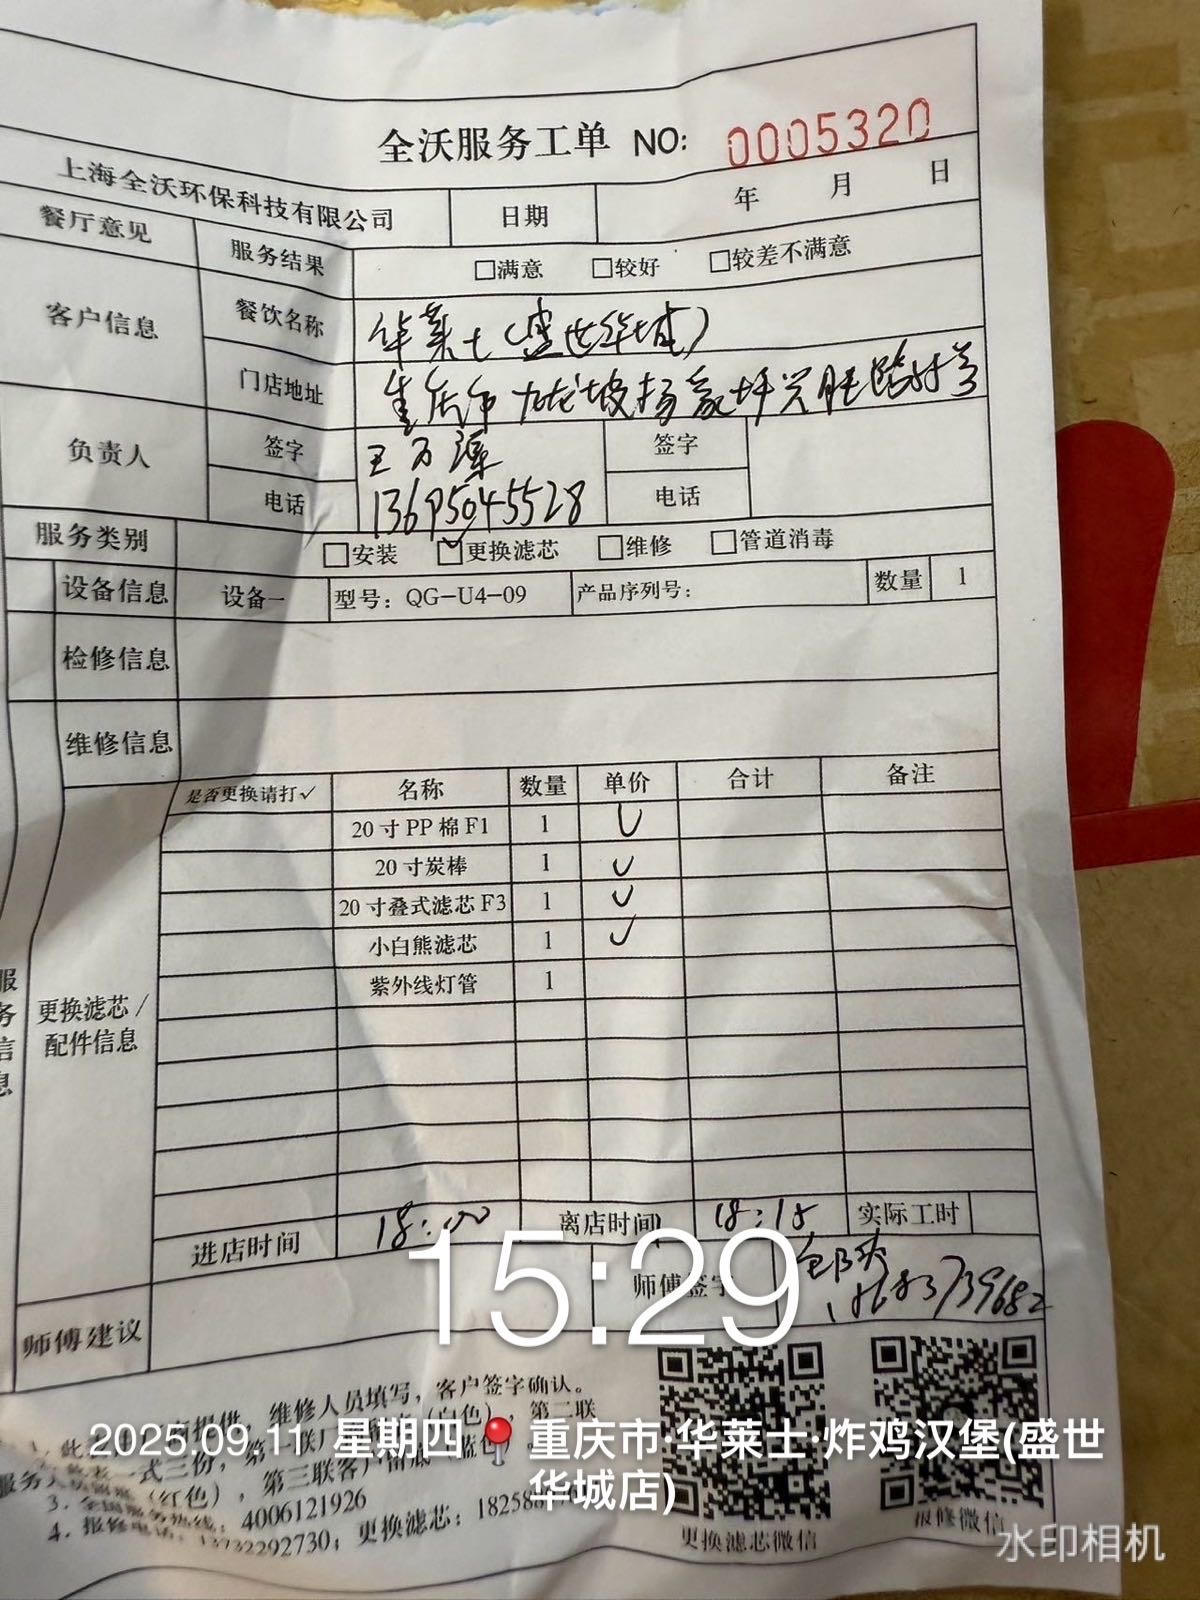 全沃服务工单 NO: 0005320
上海全沃环保科技有限公司 日期 年 月 日
餐厅意见 服务结果 □满意 □较好 □较差不满意
客户信息 餐饮名称 华莱士(盛世华城)
门店地址 重庆市九龙坡杨家坪兴胜路
负责人 签字 王万 签字
电话 13695045528 电话
服务类别 □安装 ☑更换滤芯 □维修 □管道消毒
设备信息 设备一 型号: QG-U4-09 产品序列号: 数量 1
检修信息
维修信息
是否更换请打✓ 名称 数量 单价 合计 备注
20寸PP棉F1 1 ✓
20寸炭棒 1 ✓
20寸叠式滤芯F3 1 ✓
小白熊滤芯 1 ✓
紫外线灯管 1
更换滤芯/
配件信息
服务信息
进店时间 18:00 离店时间 18:15 实际工时
师傅签字
739682
师傅建议
15:29
维修人员填写，客户签字确认。
一式三份，第一联厂 (白色)，第二联
(红色)，第三联客户留底(蓝色)。
3. 全国服务热线: 4006121926
4. 报修电话: 13732292730; 更换滤芯: 18258
更换滤芯微信 报修微信
2025.09.11 星期四 重庆市·华莱士·炸鸡汉堡(盛世
华城店)
水印相机